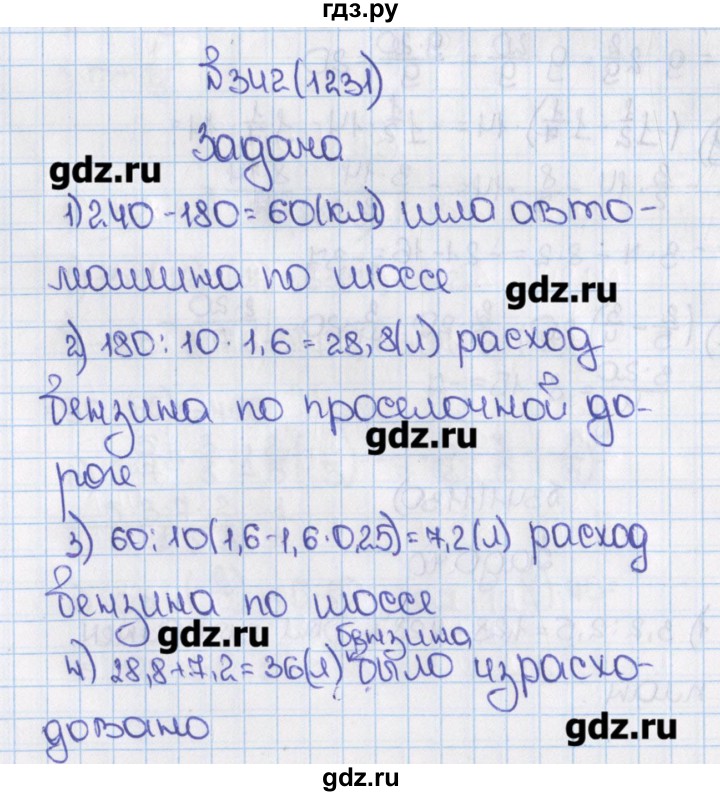 гдз.ру
№342(1231)
Задача
gdz.ru
1) 240-180=60(км) шла авто-
машина по шоссе
gdz.ru
2) 180:10·1,6=28,8(л) расход
бензина по проселочной до-
gdz.ru
роге
3) 60:10(1,6-1,6·0,25)=7,2(л) расход
бензина по шоссе
gdz.ru
бензина
4) 28,8+7,2=36(л) было израсхо-
довано
gdz.ru
gdz.ru